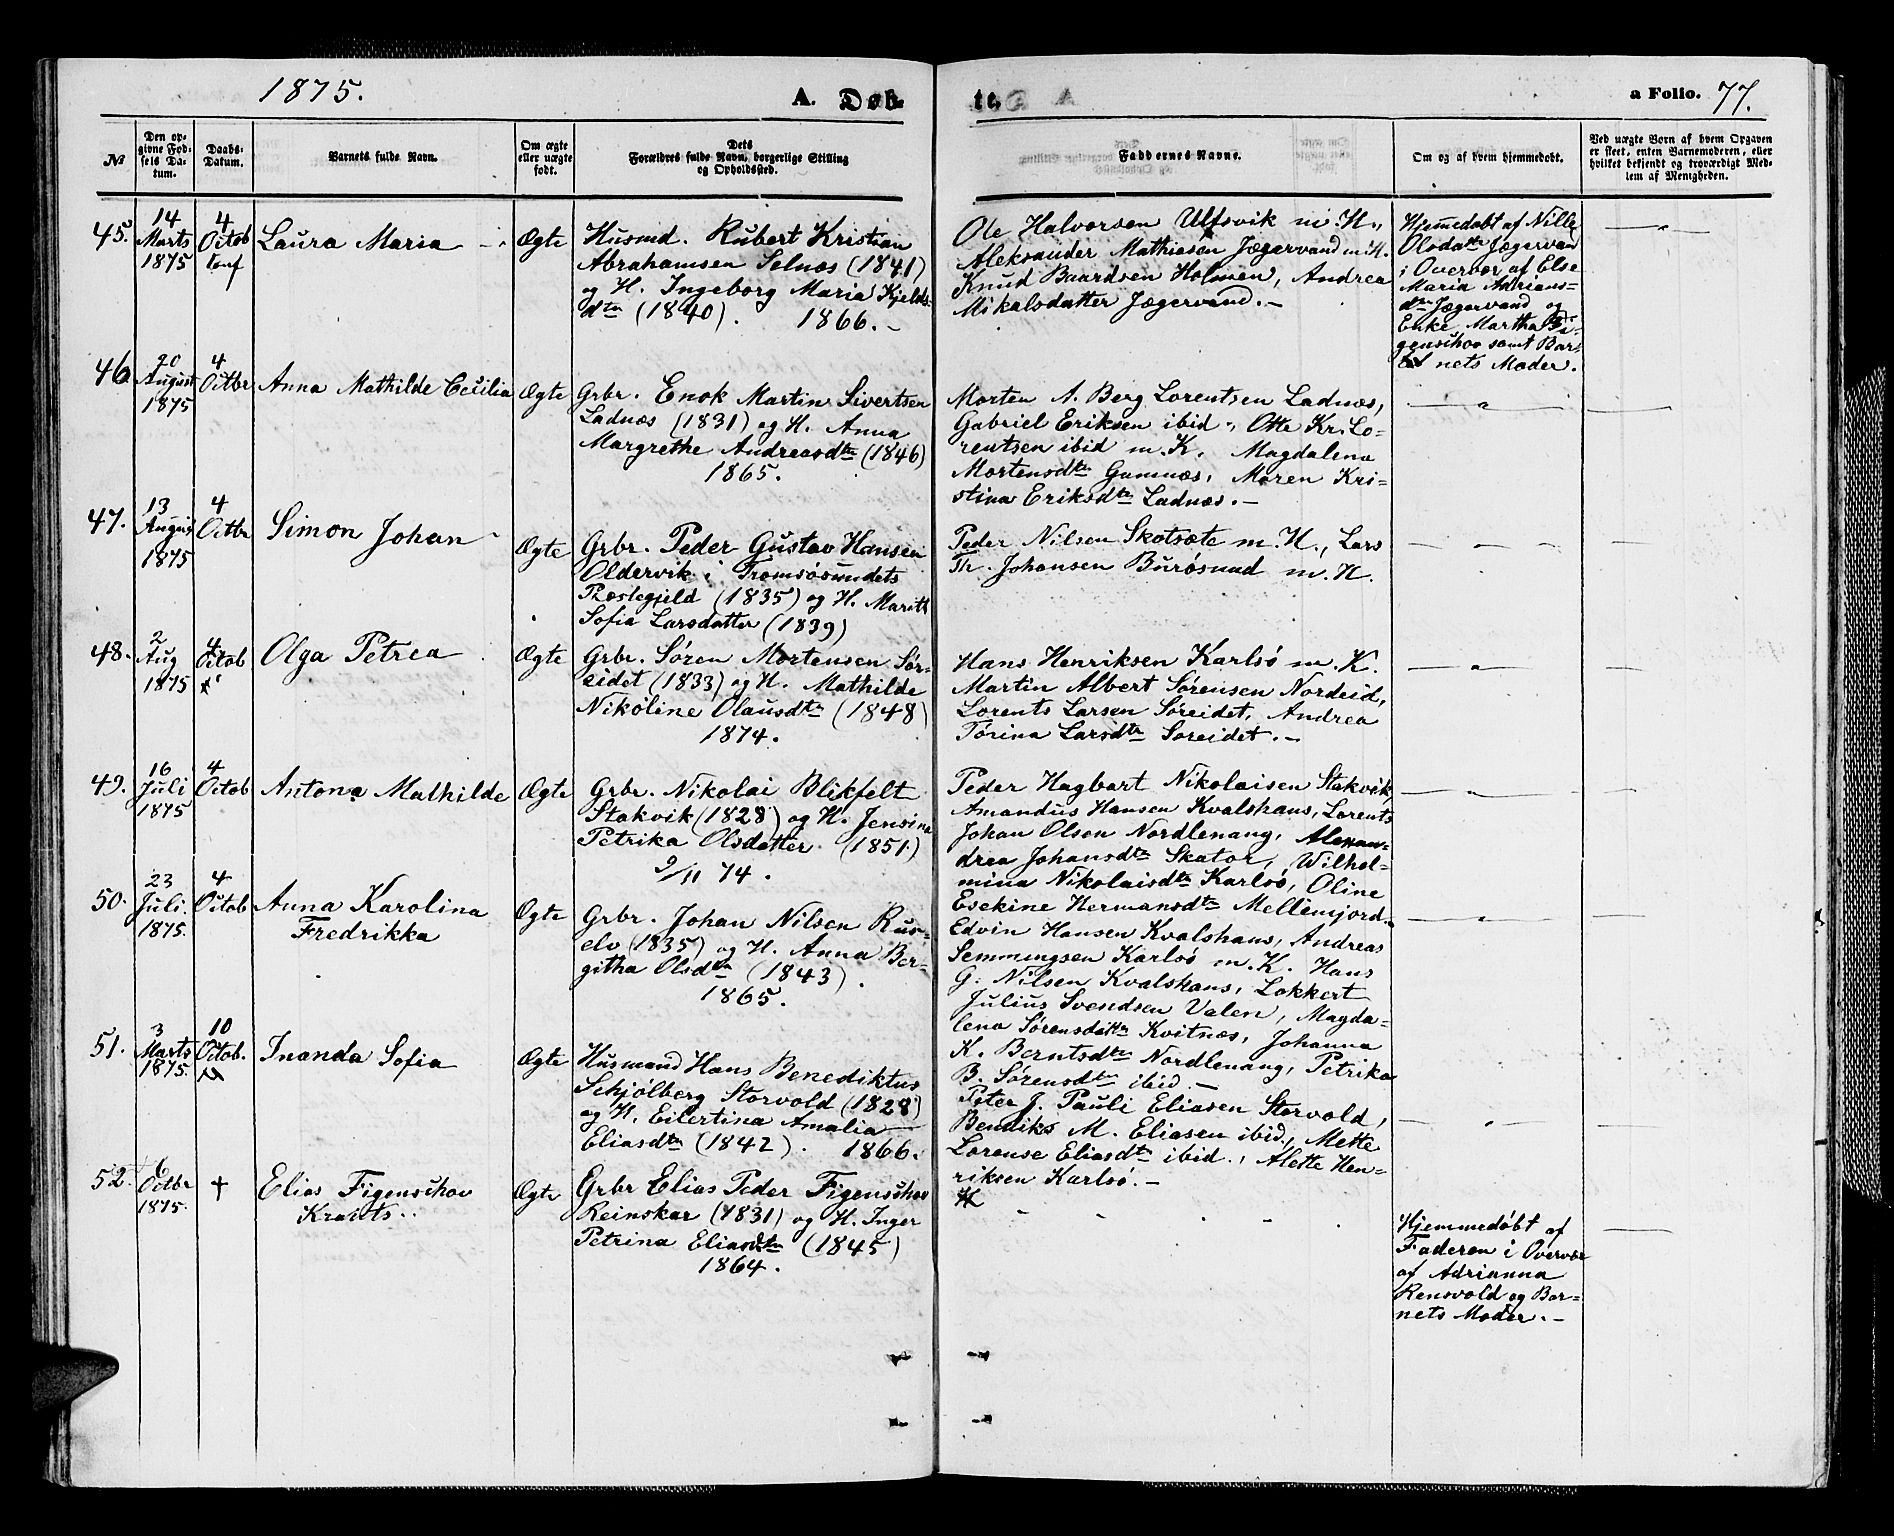 1875.
A. Døb-
te.
a Folio. 77.
№
Den op-
givne Fød-
sels Da-
tum.
Daabs-
Datum.
Barnets fulde Navn.
Om ægte
eller uægte
født.
Dets
Forældres fulde Navn, borgerlige Stilling
og Opholdssted.
Faddernes Navne.
Om og af hvem hjemmedøbt.
Ved uægte Børn af hvem Opgaven
er skeet, enten Barnemoderen, eller
hvilket bekjendt og troværdigt Med-
lem af Menigheden.
45.
14
Marts
1875
4
Octob
conf
Laura Maria
Ægte
Husmd. Rubert Kristian
Abrahamsen Selnæs (1841)
og H. Ingeborg Maria Kjelds-
dtr (1840). 1866.-
Ole Halvorsen Ulfsvik m H.,
Aleksander Mathiesen Jægervand m H.
Knud Baardsen Holmen, Andrea
Mikalsdatter Jægervand.-
Hjemmedøbt af Nille
Olsdatr Jægervan
i Overvær af Else
Maria Adrians-
dtr Jægervand og
Enke Martha Fi-
genschou samt Bar-
nets Moder.
46
20
August
1875
4
Octbr
Anna Mathilde Cecilia
Ægte
Grbr. Enok Martin Sivertsen
Ladnæs (1831) og H. Anna
Margrethe Andreasdtr (1846)
1865.
Morten A. Berg Lorentsen Ladnæs,
Gabriel Eriksen ibid., Otte Kr. Lo-
rentsen ibid m. K. Magdalena
Mortensdtr Gamnæs, Maren Kri-
stina Eriksdtr Ladnæs.-
47.
13
August
1875
4
Octbr
Simon Johan
Ægte
Grbr. Peder Gustav Hansen
Oldervik i Tromsøsundets
Præstegjeld (1835) og H. Marith
Sofia Larsdatter (1839)
Peder Nilsen Skotsæte m. H., Lars
Th. Johansen Burøsund m. H.
48.
2
Aug
1875
4
Octob
Olga Petrea
Ægte
Grbr. Søren Mortensen Sør-
eidet (1833) og H. Mathilde
Nikoline Olausdtr (1848)
1874.
Hans Henriksen Karlsø m. K.
Martin Albert Sørensen Nordeid,
Lorents Larsen Søreidet, Andrea
Tørina Larsdtr Søreidet.-
49.
16
Juli
1875
4
Octob
Antona Mathilde
Ægte
Grbr. Nikolai Blikfelt
Stakvik (1828) og H. Jensina
Petrika Olsdatter (1851)
9/11 74.
Peder Hagbart Nikolaisen Stakvik,
Amandus Hansen Kvalshaus, Lorents
Johan Olsen Nordlenang, Alexan-
drea Johansdtr Skator, Wilhel-
mina Nikolaisdtr Karlsø, Oline
Esekine Hermansdtr Mellemjord.
50.
23
Juli.
1875.
4
Octob
Anna Karolina
Fredrikka
Ægte
Grbr. Johan Nilsen Rus-
elv (1835) og H. Anna Ber-
githa Olsdtr (1843).
1865.
Edvin Hansen Kvalshaus, Andreas
Semmingsen Karlsø m. K. Hans
G. Nilsen Kvalshaus, Lokkert
Julius Svendsen Valen, Magda-
lena Sørensdattr Kvitnæs, Johanna
K. Berntsdtr Nordlenang, Petrika
B. Sørensdtr ibid.-
51.
3
Marts
1875.
10
Octob.
Inanda Sofia
Ægte
Husmand Hans Benediktus
Schjølberg Storvold (1828)
og H. Eilertina Amalia
Eliasdtr (1842). 1866.
Peter J. Pauli Eliasen Storvold,
Bendiks M. Eliasen ibid., Mette
Lorense Eliasdtr ibid., Alette Hen-
riksen Karlsø.-
52.
6
Octbr
1875.
†
Elias Figenschou
Krants..
Ægte
Grbr Elias Peder Figenschou
Reinskar (1831) og H. Inger
Petrina Eliasdtr (1845)
1864.
Hjemmedøbt af
Faderen i Overvær
af Adrianna
Rensvold og Bar-
nets Moder.-